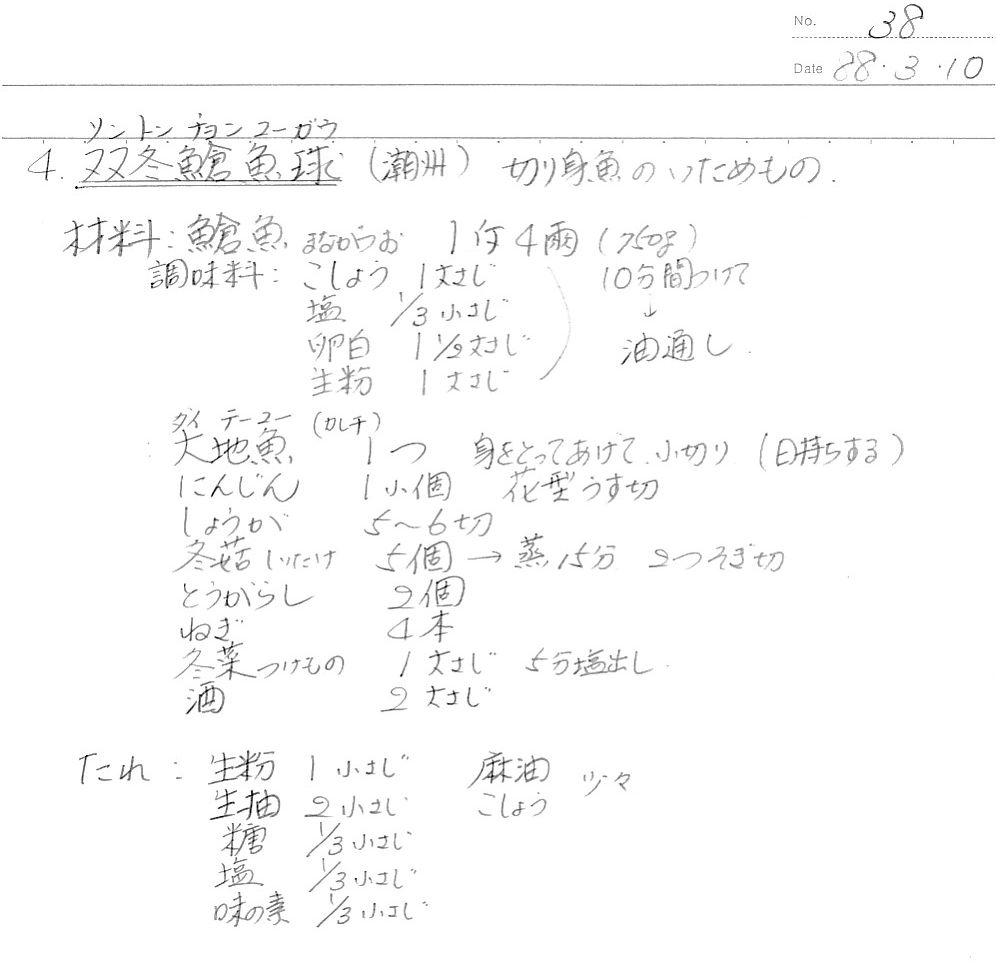 No. 38
Date 88・3・10
ソン トン チョン ユーガウ
4. 双冬鱠魚球 (潮州) 切り身魚のいためもの.
材料: 鱠魚 まながつお 1斤4兩 (750g)
調味料: こしょう 1大さじ 10分間つけて
塩 1/3小さじ ↓
卵白 1 1/2大さじ 油通し.
生粉 1大さじ
ダイ テーユー (カレチ)
: 大地魚 1つ 身をとってあげて、小切り (日持ちする)
にんじん 1小個 花型うす切
しょうが 5〜6切
冬菇しいたけ 5個 → 蒸15分 2つそぎ切
とうがらし 2個
ねぎ 4本
冬菜つけもの 1大さじ 5分塩出し.
酒 2大さじ
たれ: 生粉 1小さじ 麻油 少々
生抽 2小さじ こしょう
糖 1/3小さじ
塩 1/3小さじ
味の素 1/3小さじ